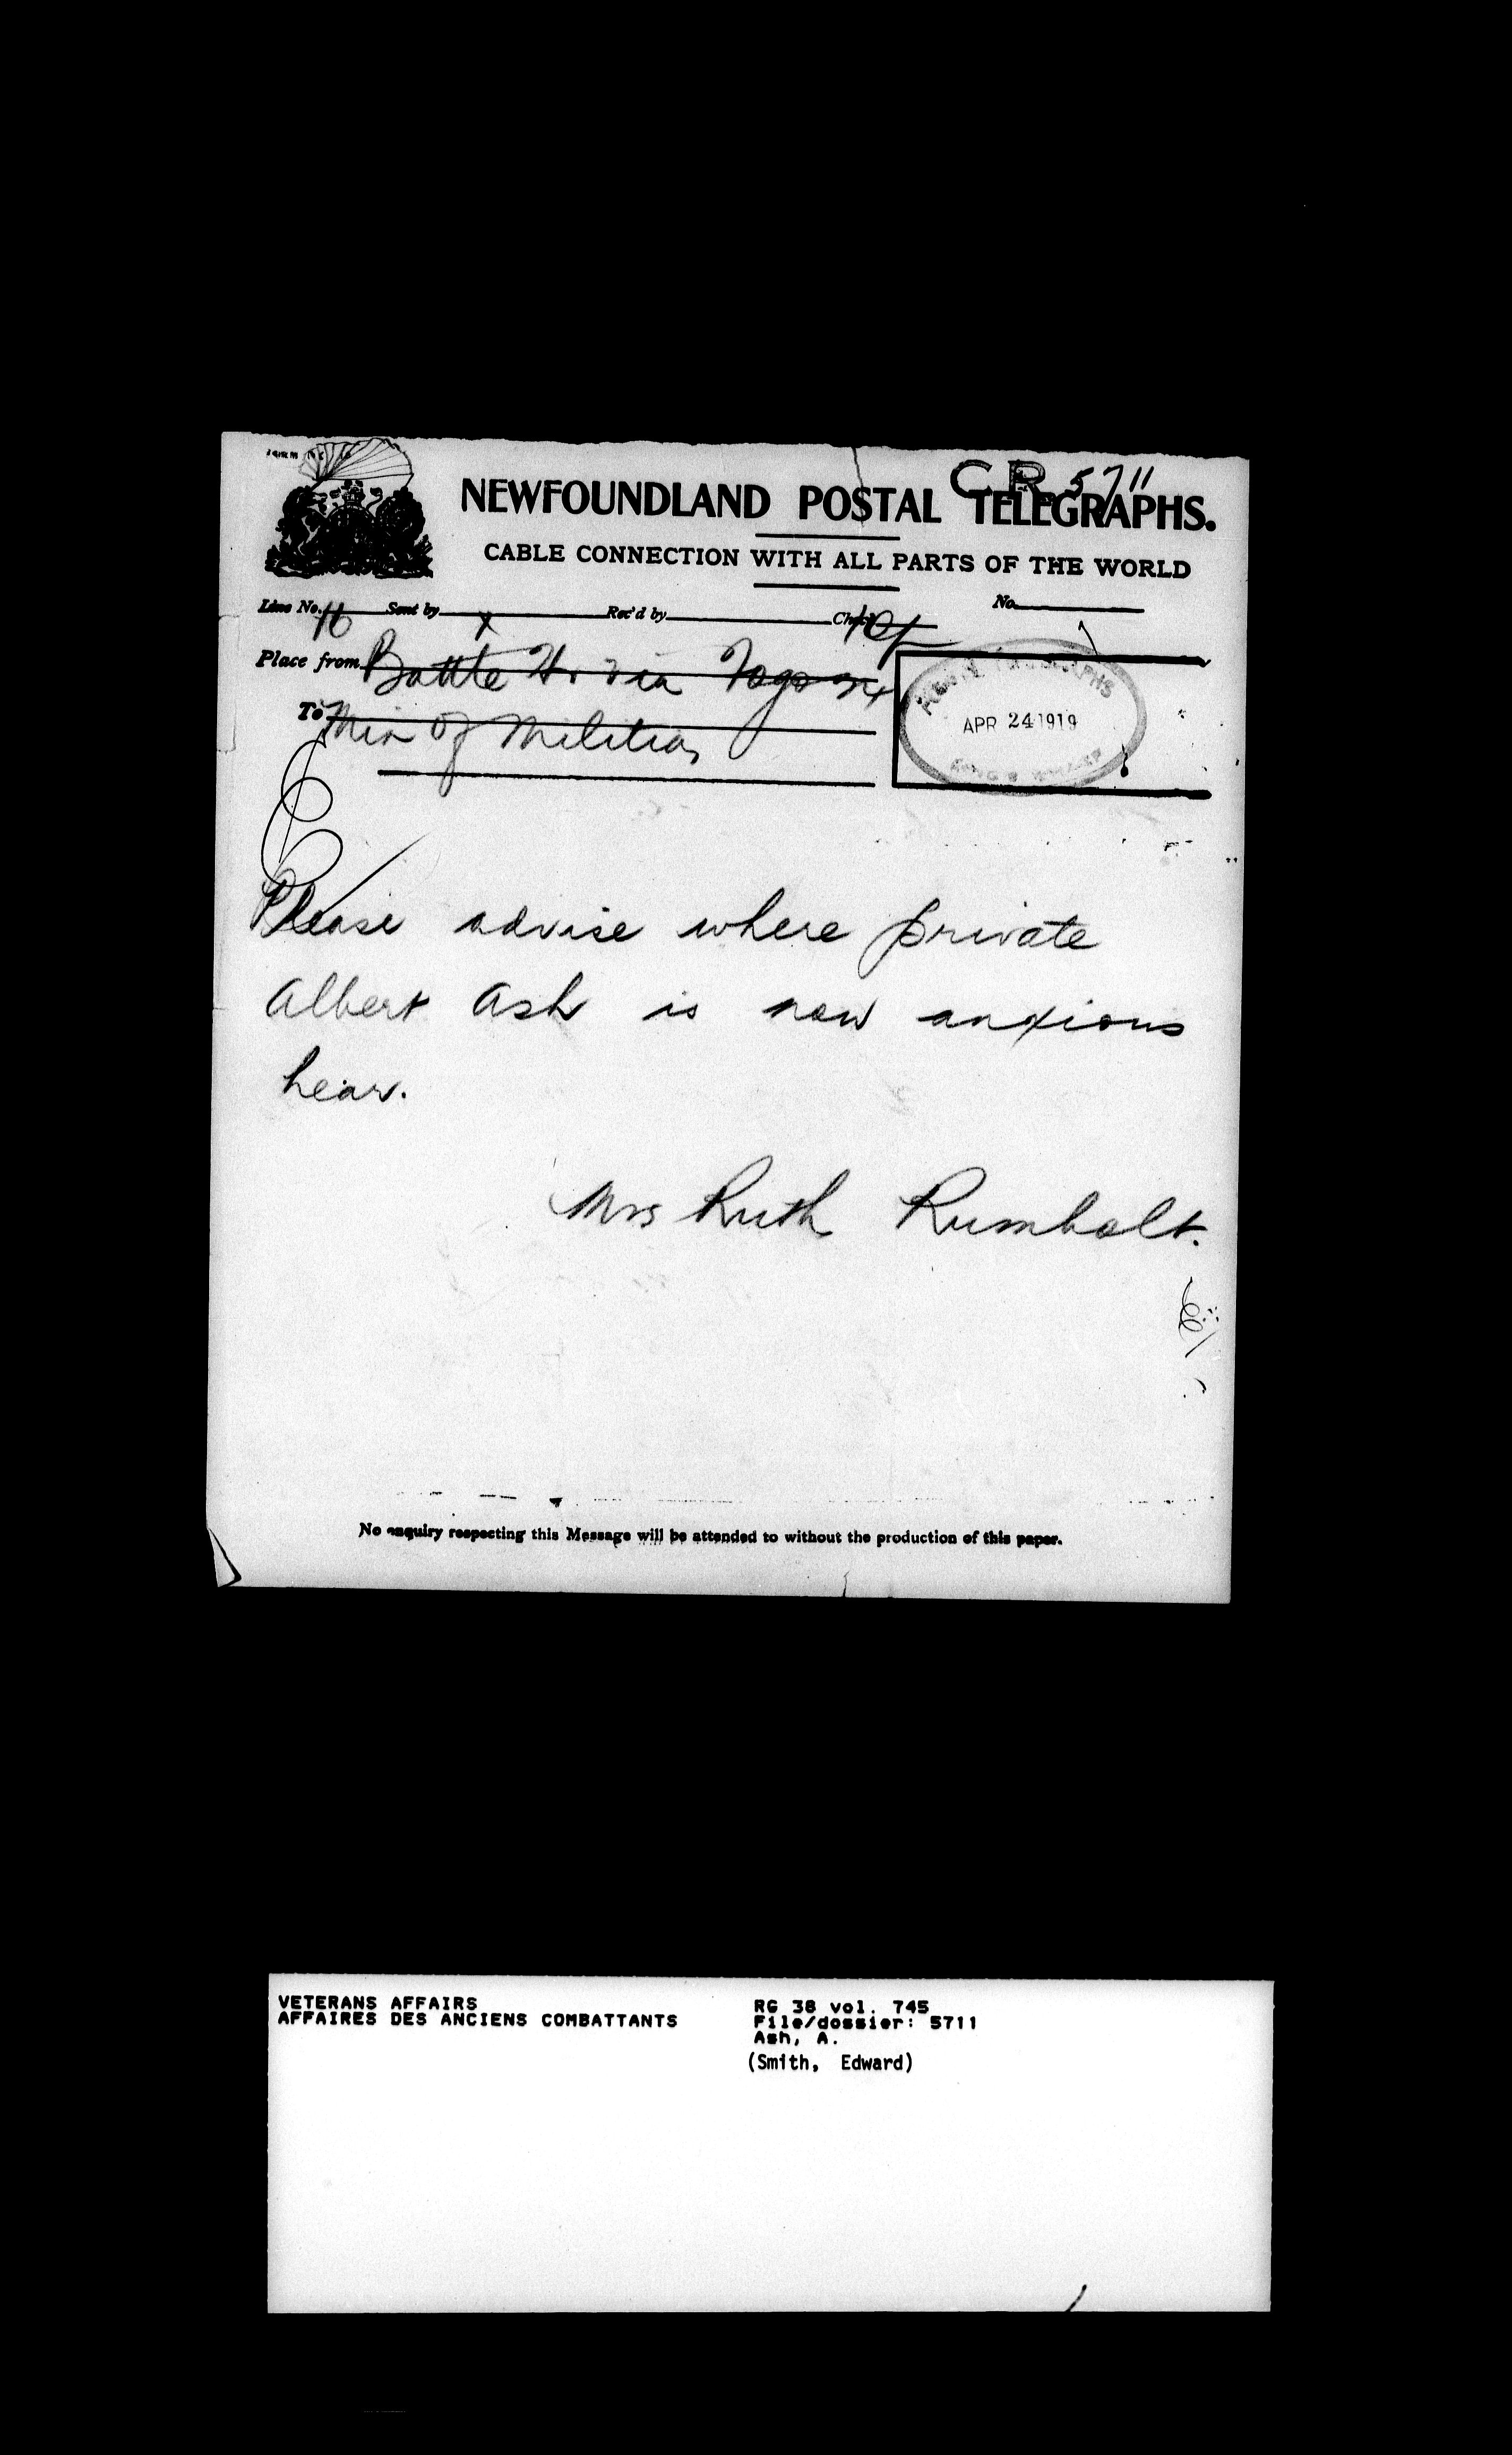 C.R. 5711
NEWFOUNDLAND POSTAL TELEGRAPHS.
CABLE CONNECTION WITH ALL PARTS OF THE WORLD
Line No. 16 Sent by Rec'd by Check No.
Place from Battle Hr via Fogo
To Min of Militia
APR 24 1919
Please advise where private
Albert Ash is now anxious
hear.
Mrs Ruth Rumbolt.
No enquiry respecting this Message will be attended to without the production of this paper.
VETERANS AFFAIRS RG 38 vol. 745
AFFAIRES DES ANCIENS COMBATTANTS File/dossier: 5711
Ash, A.
(Smith, Edward)